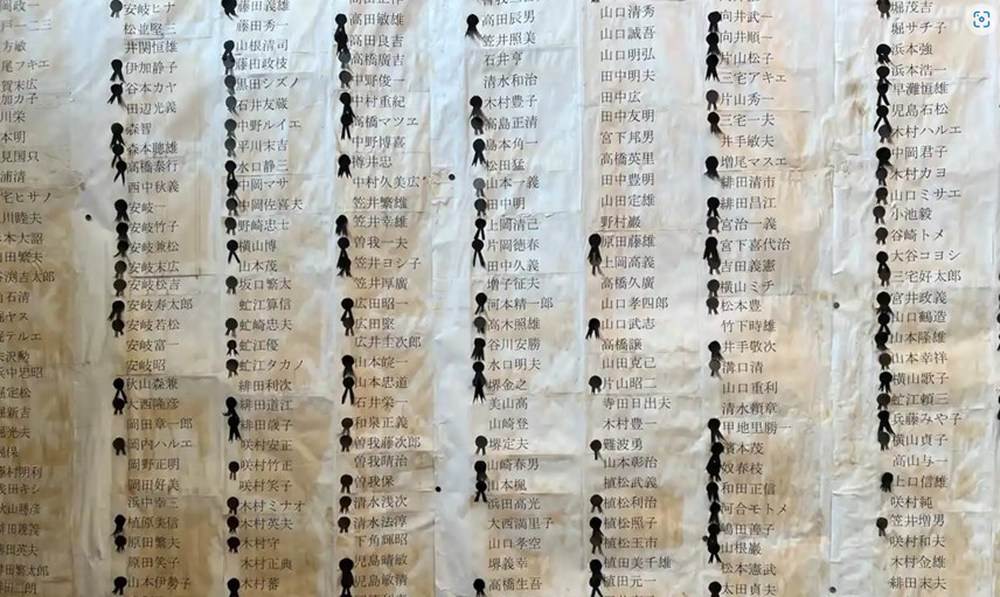 安岐ヒナ
松並堅三
井関恒雄
伊加静子
谷本カヤ
田辺光義
森智
森本聰雄
高橋泰行
西中秋義
安岐一
安岐竹子
安岐兼松
安岐末広
安岐松吉
安岐寿太郎
安岐若松
安岐富一
安岐昭
秋山森兼
大西隆彦
岡田章一郎
岡内ハルエ
岡野正明
岡田好美
浜中幸三
植原美信
原田繁夫
原田笑子
山本伊勢子
藤田義雄
藤田秀一
山根清司
藤田政枝
黒田シズノ
石井友蔵
中野ルイエ
平川末吉
水口静三
中岡マサ
中岡佐喜夫
野崎忠士
横山博
山本茂
坂口繁太
虻江算信
虻崎忠夫
虻江優
虻江タカノ
緋田利次
緋田道江
緋田歳子
咲村安正
咲村竹正
咲村笑子
木村ミナオ
木村英夫
木村守
木村正典
木村蕃
高田敏雄
高田良吉
高橋廣吉
中野俊一
中村重紀
高橋マツヱ
中野博喜
樽井忠
中村久美広
笠井繁雄
笠井幸雄
曽我一夫
笠井ヨシ子
笠井厚廣
広田昭一
広田堅
広井圭次郎
山本皖一
山本忠道
石井栄一
和泉正義
曽我藤次郎
曽我晴治
曽我保
清水浅次
清水法淳
下角輝昭
児島晴敏
児島敏清
高田辰男
笠井照美
石井亨
清水和治
木村豊子
高島正清
島本角一
松田猛
山本一義
田中明
上岡清己
片岡徳春
田中久義
増子征夫
河本精一郎
高木照雄
谷川安勝
水口明夫
堺金之
美山高
山崎登
堺定夫
山崎春男
山本楓
浜田高光
大西満里子
山口孝空
堺義幸
高橋生吾
山口清秀
山口誠吾
山口明弘
田中明夫
田中広
田中友明
宮下邦男
高橋英里
田中豊明
山田定雄
野村巖
原田藤雄
上岡高義
高橋久廣
山口孝四郎
山口武志
高橋譲
山田克己
片山昭二
寺田日出夫
木村豊一
難波勇
山本彰治
植松武義
植松利治
植松照子
植松玉市
植田美千雄
植田元一
向井武一
向井順一
片山松子
三宅アキエ
片山秀一
三宅一夫
井手敏夫
増尾マスエ
緋田清市
緋田昌江
宮治一義
宮下喜代治
吉田義憲
横山ミチ
松本豊
竹下時雄
井手敬次
溝口清
山口重利
清水頼章
甲地里勝一
濱本茂
奴春枝
和田正信
河合モトメ
嶋田淳子
山根巖
松本憲武
太田貞夫
堀茂吉
堀サチ子
浜本強
浜本浩一
早灘恒雄
児島石松
木村ハルエ
中岡君子
木村カヨ
山口ミサエ
小池毅
谷崎トメ
大谷コヨシ
三宅好太郎
宮井政義
山口鶴造
山本隆雄
山本幸祥
横山歌子
虻江頼三
兵藤みや子
横山貞子
高山与一
上口信雄
咲村純
笠井増男
咲村和夫
木村金雄
緋田末夫